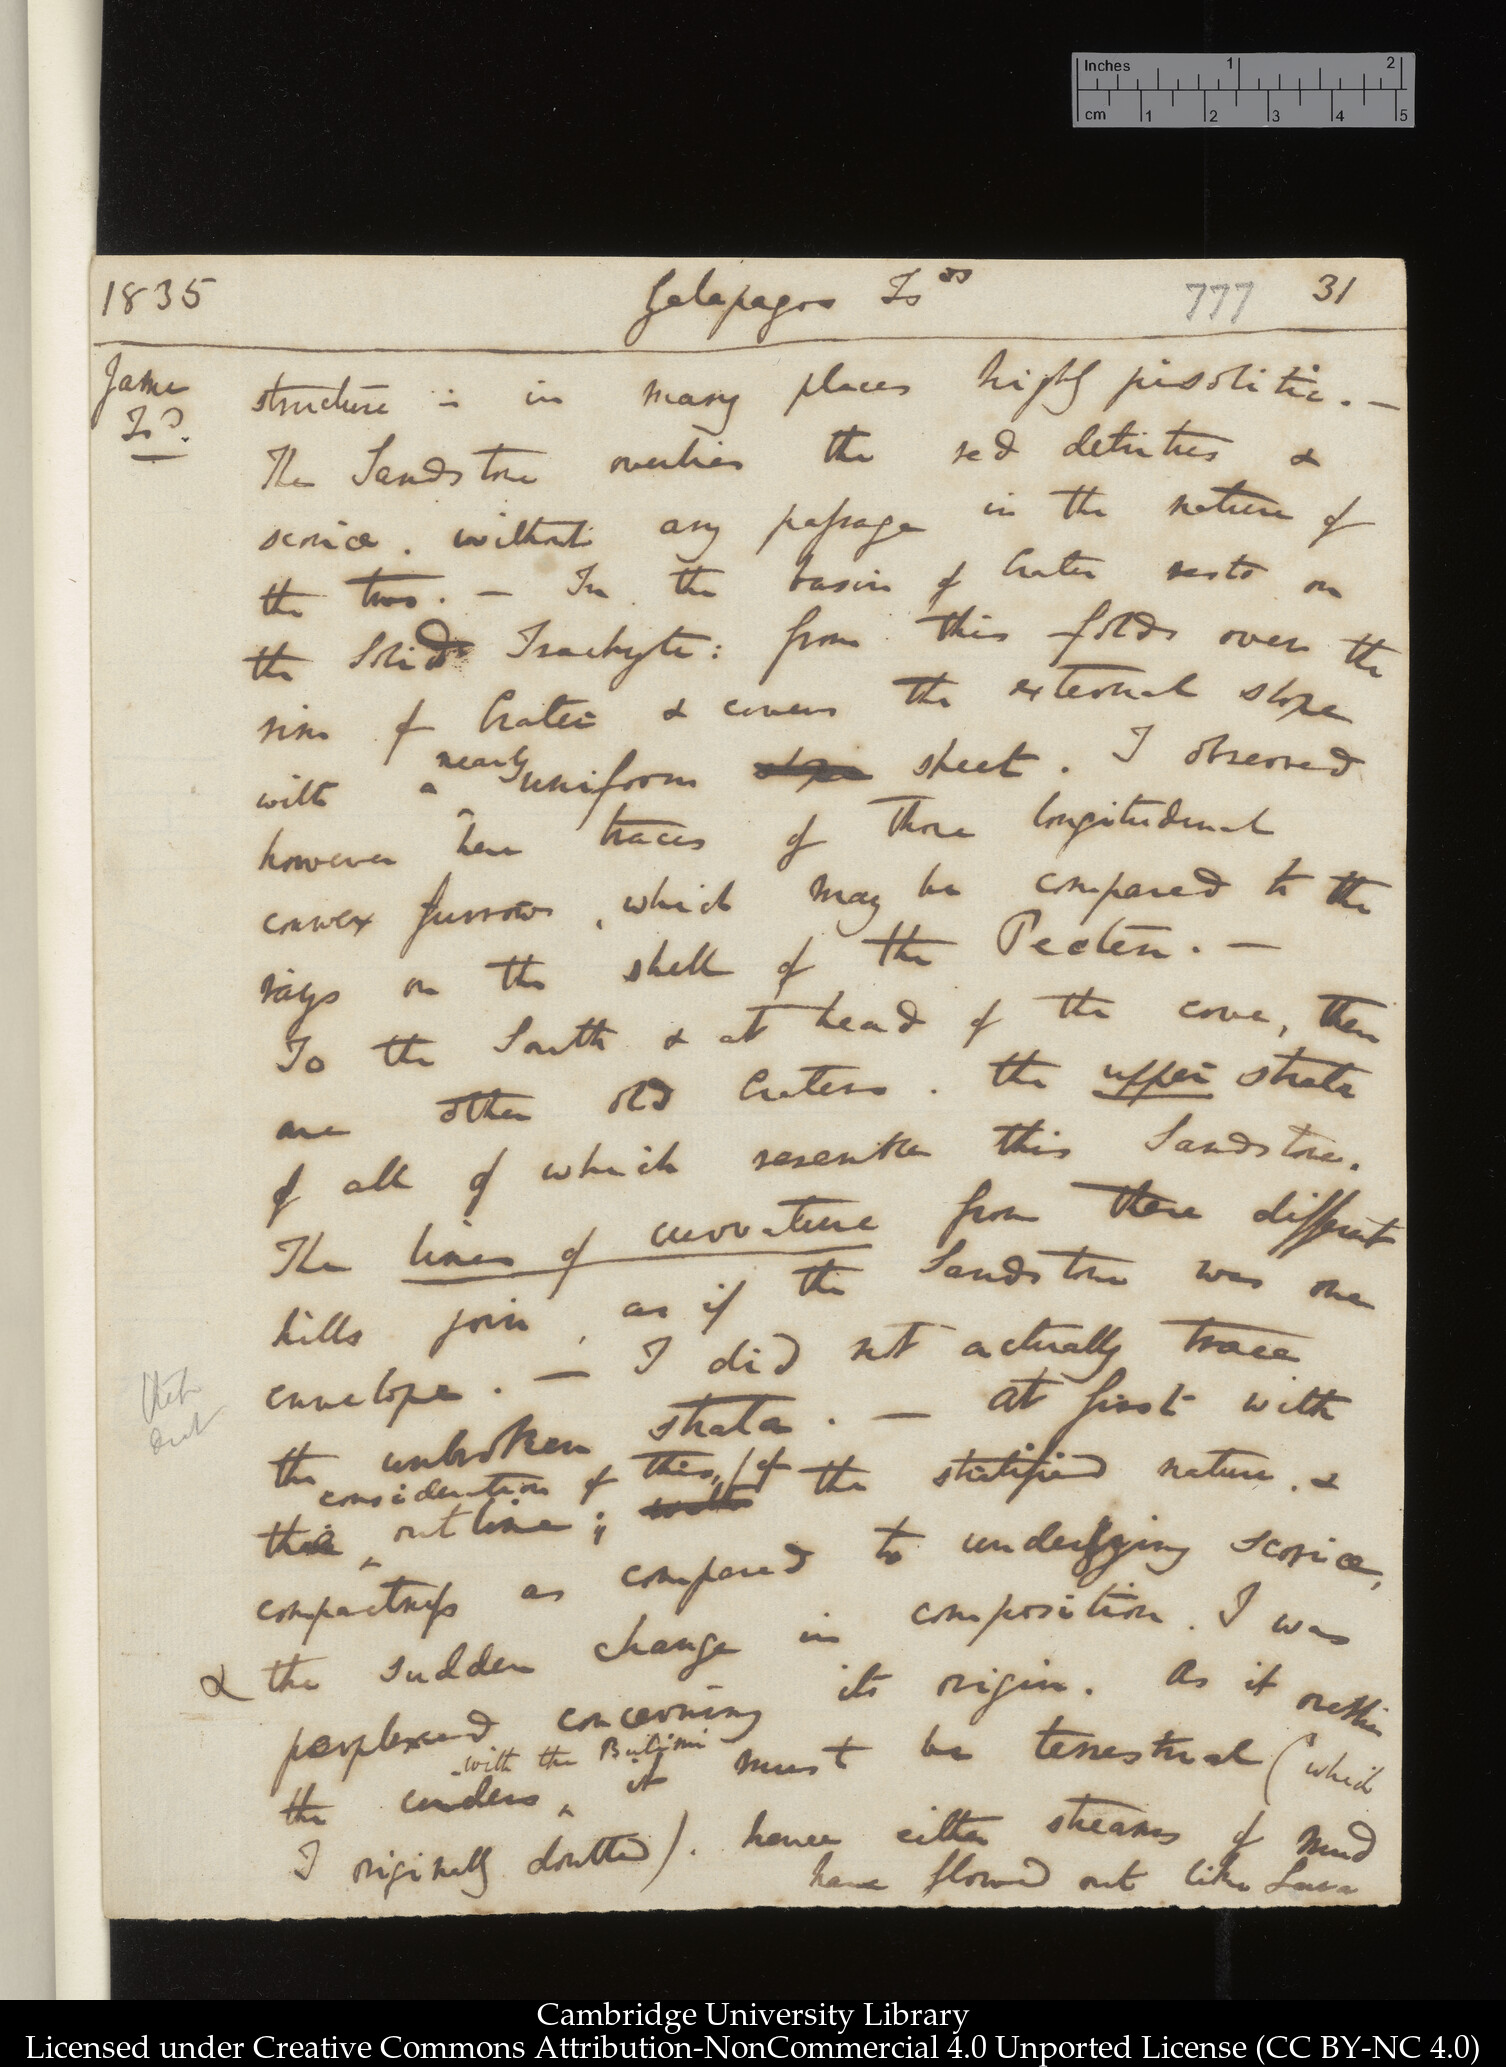 Inches 1 2
cm 1 2 3 4 5
1835 Galapagos Is ds 777 31
James
Isd.
structure is in many places highly pisolitic. —
The Sandstone overlies the red detritus &
scoriæ. without any passage in the nature of
the two. — In the basin of Crater rests on
the solid Trachyte: from this folds over the
rim of Crater & covers the external slope
with a nearly uniform slope sheet. I observed
however here traces of those longitudinal
convex furrows, which may be compared to the
rays on the shell of the Pecten. —
To the South & at head of the cove, there
are other old Craters. the upper strata
of all of which resemble this Sandstone.
The lines of curvature from these different
hills join, as if the Sandstone was one
envelope. — I did not actually trace
the unbroken strata. — At first with
consideration of this, of the stratified nature, &
outline; with
compactness as compared to underlying scoriæ,
& the sudden change in composition. I was
perplexed concerning its origin. As it overlies
the cinders with the Bulimi, it must be terrestrial (which
I originally doubted). hence either streams of mud
have flowed out like Lava
Cambridge University Library
Licensed under Creative Commons Attribution-NonCommercial 4.0 Unported License (CC BY-NC 4.0)